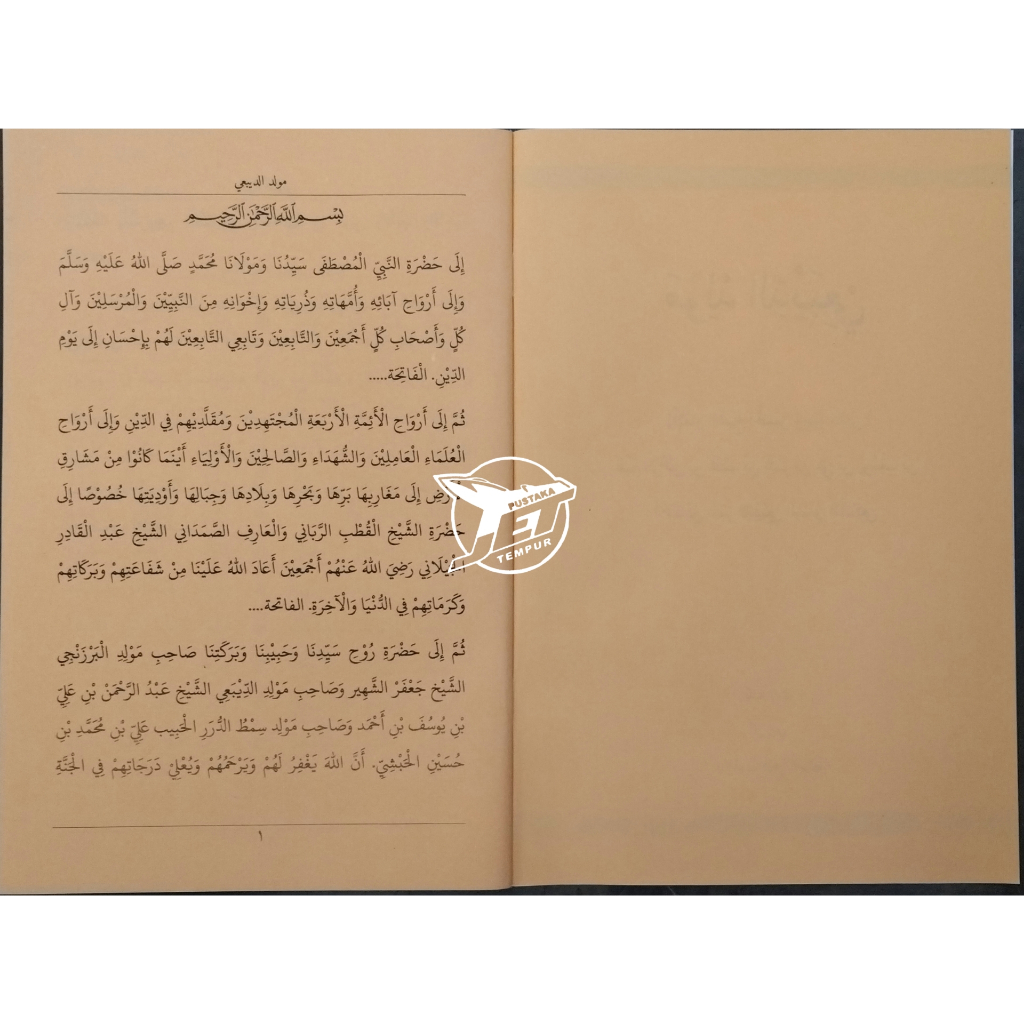 مولد الديبعي
بِسْمِ اللَّهِ الرَّحْمَنِ الرَّحِيمِ
إِلَى حَضْرَةِ النَّبِيِّ الْمُصْطَفَى سَيِّدُنَا وَمَوْلَانَا مُحَمَّدٍ صَلَّى اللهُ عَلَيْهِ وَسَلَّمَ
وَإِلَى أَرْوَاحِ آبَائِهِ وَأُمَّهَاتِهِ وَذُرِيَاتِهِ وَإِخْوَانِهِ مِنَ النَّبِيِّيْنَ وَالْمُرْسَلِيْنَ وَآلِ
كُلٍّ وَأَصْحَابِ كُلٍّ أَجْمَعِيْنَ وَالتَّابِعِيْنَ وَتَابِعِي التَّابِعِيْنَ لَهُمْ بِإِحْسَانِ إِلَى يَوْمِ
الدِّيْنِ. الْفَاتِحَة.....
ثُمَّ إِلَى أَرْوَاحِ الْأَئِمَّةِ الْأَرْبَعَةِ الْمُجْتَهِدِيْنَ وَمُقَلَّدِيْهِمْ فِي الدِّيْنِ وَإِلَى أَرْوَاحِ
الْعُلَمَاءِ الْعَامِلِيْنَ وَالشُّهَدَاءِ وَالصَّالِحِيْنَ وَالْأَوْلِيَاءِ أَيْنَمَا كَانُوْا مِنْ مَشَارِقِ
الْأَرْضِ إِلَى مَغَارِبِهَا بَرِّهَا وَبَحْرِهَا وَبِلَادِهَا وَجِبَالِهَا وَأَوْدِيَتِهَا خُصُوْصًا إِلَى
حَضْرَةِ الشَّيْخِ الْقُطْبِ الرَّبَانِي وَالْعَارِفِ الصَّمَدَانِي الشَّيْخِ عَبْدِ الْقَادِرِ
الْجِيْلَانِي رَضِيَ اللهُ عَنْهُمْ أَجْمَعِيْنَ أَعَادَ اللهُ عَلَيْنَا مِنْ شَفَاعَتِهِمْ وَبَرَكَاتِهِمْ
وَكَرَمَاتِهِمْ فِي الدُّنْيَا وَالْآخِرَةِ. الفاتحة....
ثُمَّ إِلَى حَضْرَةِ رُوْحِ سَيِّدِنَا وَحَبِيْبِنَا وَبَرَكَتِنَا صَاحِبِ مَوْلِدِ الْبَرْزَنْجِي
الشَّيْخِ جَعْفَرْ الشَّهِيْرِ وَصَاحِبِ مَوْلِدِ الدِّيْبَعِي الشَّيْخِ عَبْدُ الرَّحْمَنْ بْنِ عَلِيّ
بْنِ يُوسُفَ بْنِ أَحْمَد وَصَاحِبِ مَوْلِدِ سِمْطُ الدُّرَرِ الْحَبِيب عَلِيّ بْنِ مُحَمَّدِ بْنِ
حُسَيْنِ الْحَبْشِيّ. أَنَّ اللهَ يَغْفِرُ لَهُمْ وَيَرْحَمُهُمْ وَيُعْلِيْ دَرَجَاتِهِمْ فِي الْجَنَّةِ
١
PUSTAKA
JET
TEMPUR